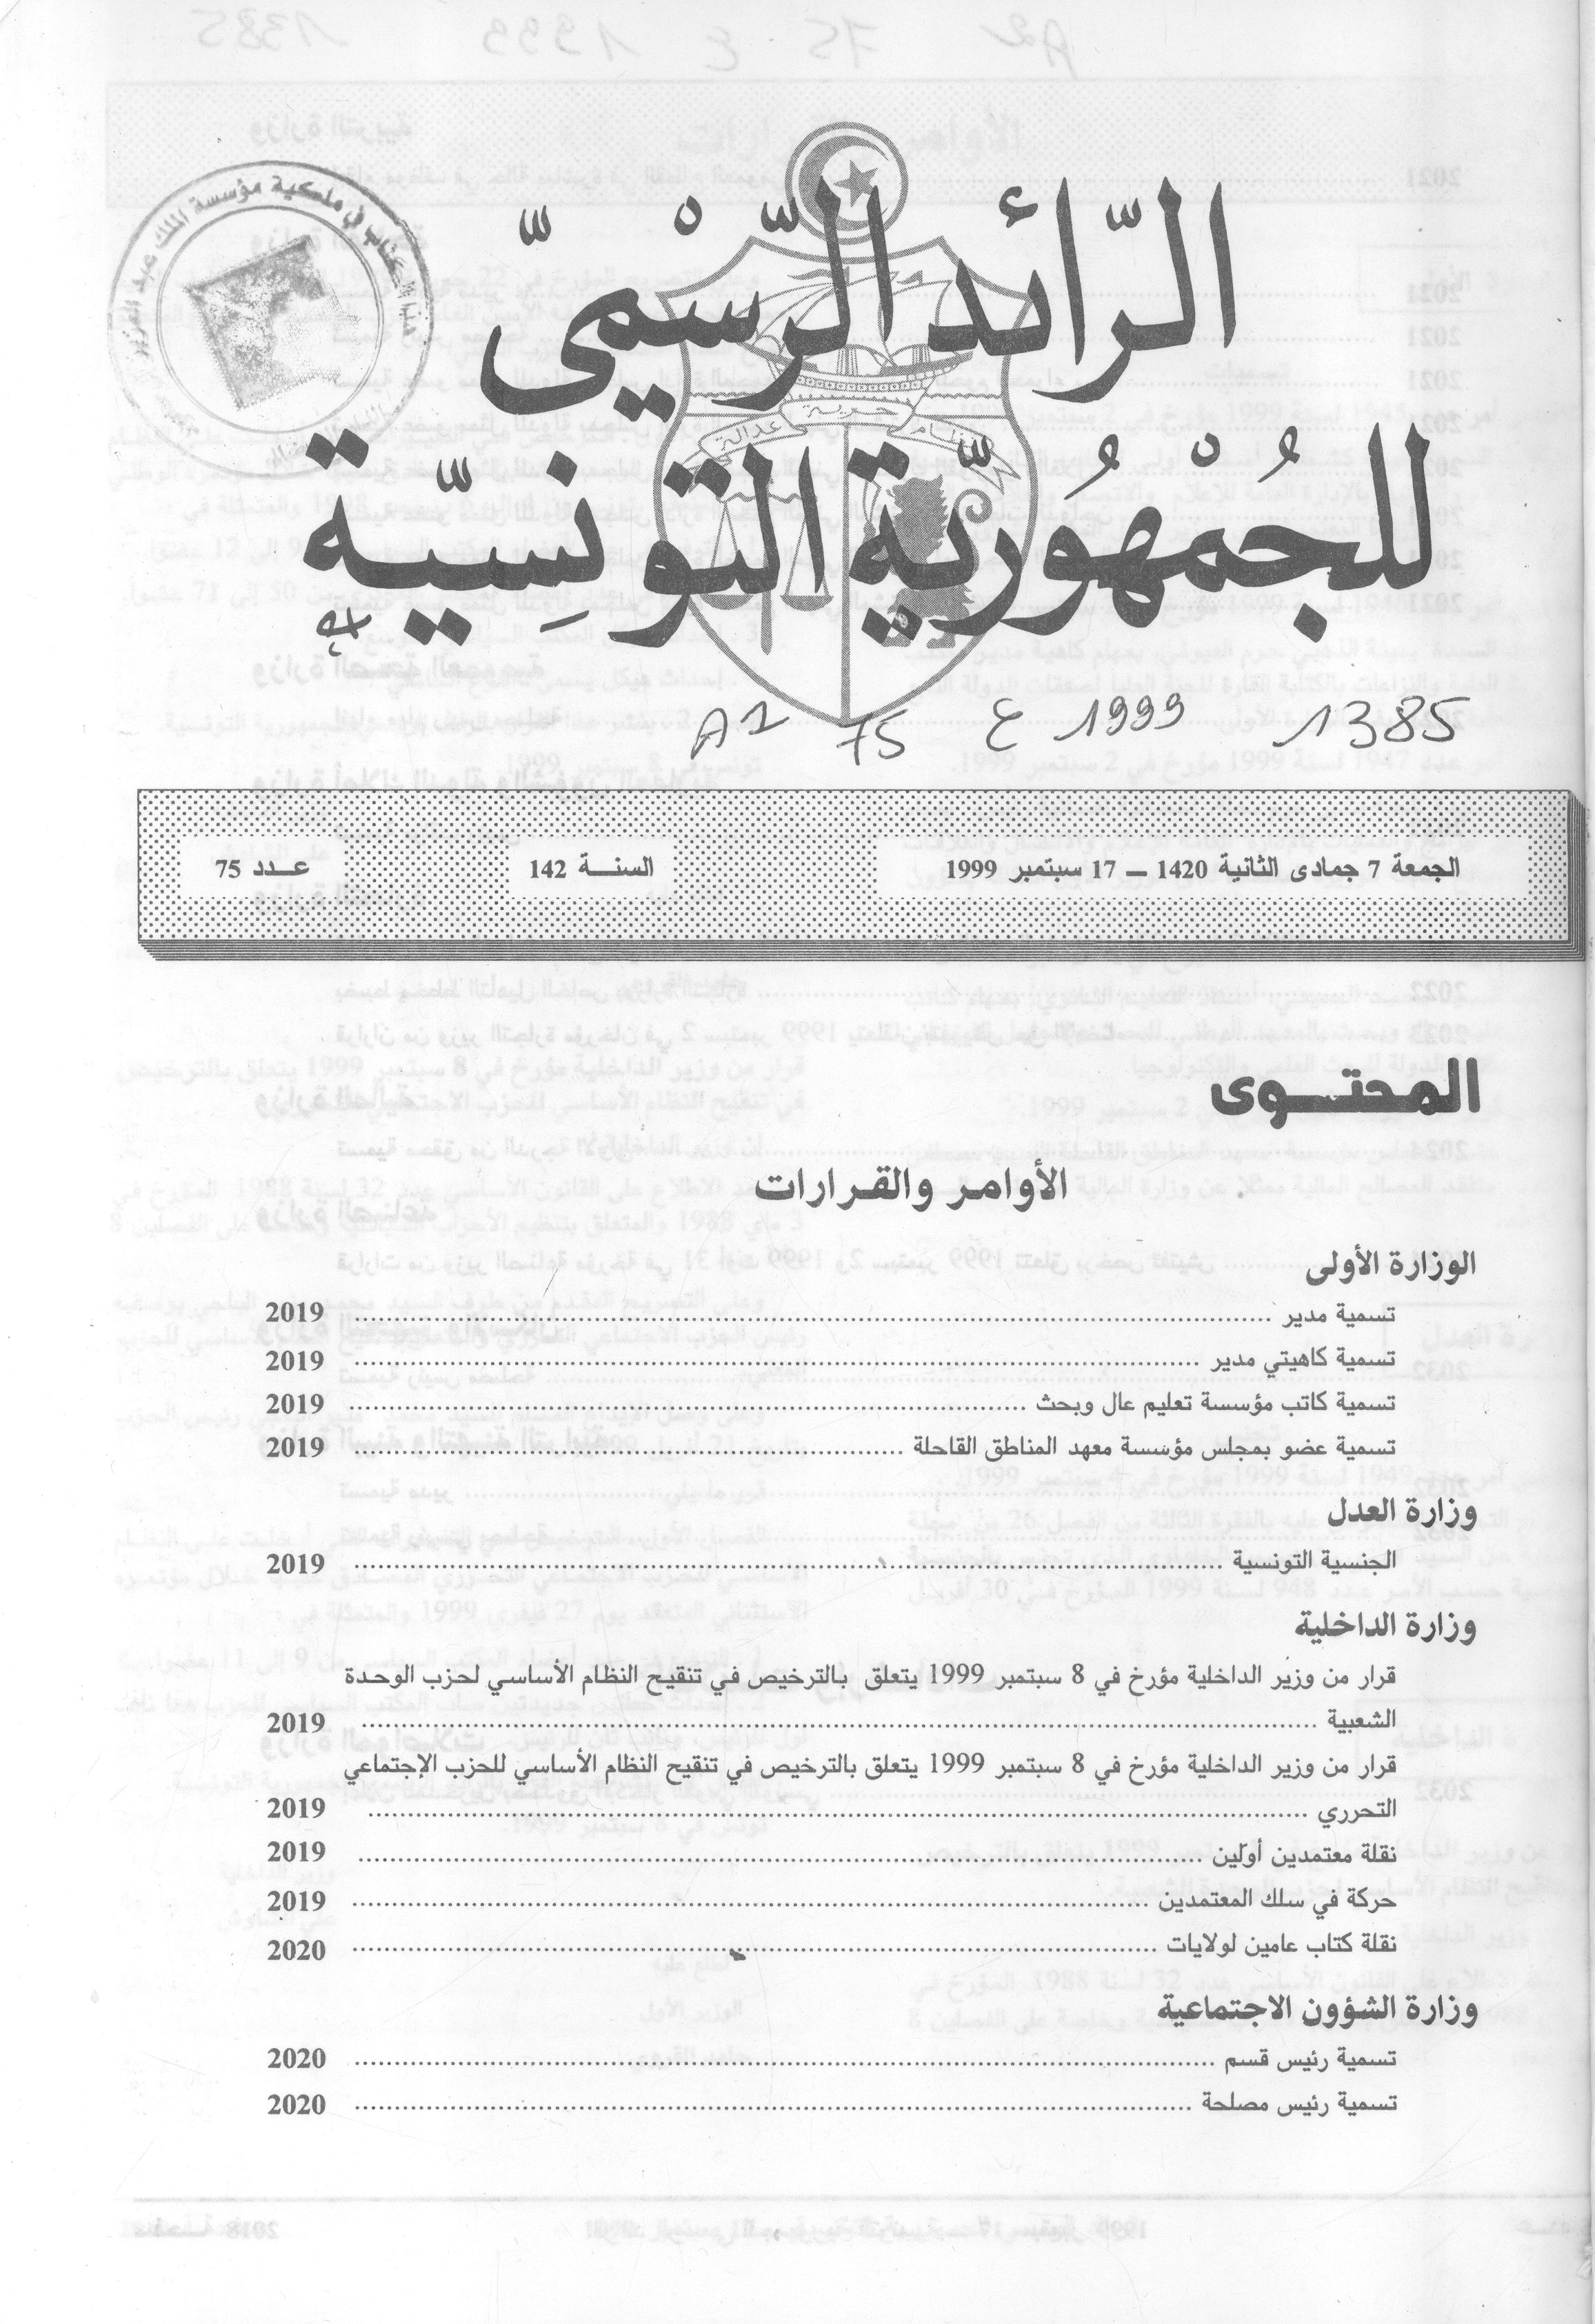 الرّائد الرّسْميّ
للجُمْهُوريّة التّونِسيّة
نظام
حرية
عدالة
هذا الكتاب في ملكية مؤسسة الملك عبد العزيز
A1 75 ع 1999 1385
الجمعة 7 جمادى الثانية 1420 — 17 سبتمبر 1999
السنـــة 142
عـــدد 75
المحتــوى
الأوامر والقرارات
الوزارة الأولى
تسمية مدير ........ 2019
تسمية كاهيتي مدير ........ 2019
تسمية كاتب مؤسسة تعليم عال وبحث ........ 2019
تسمية عضو بمجلس مؤسسة معهد المناطق القاحلة ........ 2019
وزارة العدل
الجنسية التونسية ........ 2019
وزارة الداخلية
قرار من وزير الداخلية مؤرخ في 8 سبتمبر 1999 يتعلق بالترخيص في تنقيح النظام الأساسي لحزب الوحدة
الشعبية ........ 2019
قرار من وزير الداخلية مؤرخ في 8 سبتمبر 1999 يتعلق بالترخيص في تنقيح النظام الأساسي للحزب الإجتماعي
التحرري ........ 2019
نقلة معتمدين أولين ........ 2019
حركة في سلك المعتمدين ........ 2019
نقلة كتاب عامين لولايات ........ 2020
وزارة الشؤون الاجتماعية
تسمية رئيس قسم ........ 2020
تسمية رئيس مصلحة ........ 2020